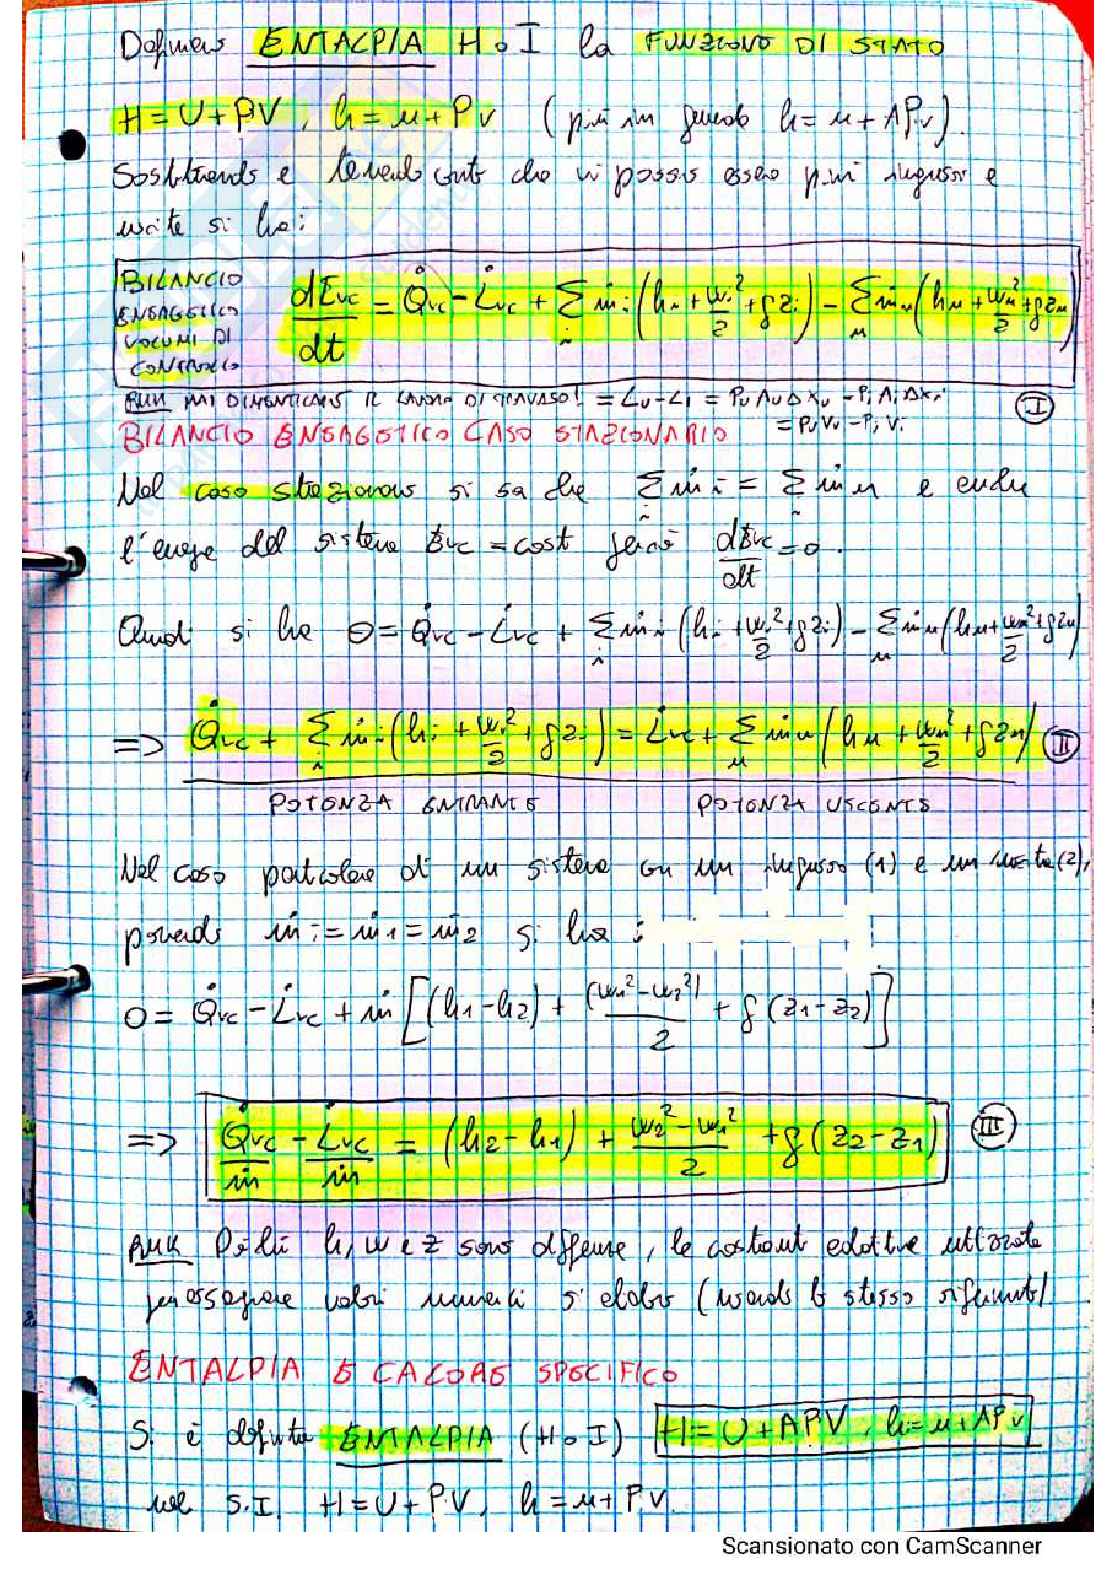 Definiamo ENTALPIA H o I la FUNZIONE DI STATO
H = U + PV, h = u + Pv (più in generale h = u + APv).
Sostituendo e tenendo conto che vi possono essere più ingressi e
uscite si ha:
BILANCIO ENERGETICO VOLUMI DI CONTROLLO
dEvc/dt = Q̇vc - L̇vc + Σi ṁi (hi + wi²/2 + gzi) - Σu ṁu (hu + wu²/2 + gzu)
RMK MAI DIMENTICARE IL LAVORO DI TRAVASO! = Lu - Li = PuAuΔxu - PiAiΔxi (I)
= PuVu - PiVi
BILANCIO ENERGETICO CASO STAZIONARIO
Nel caso stazionario si sa che Σi ṁi = Σ ṁu e anche
l'energia del sistema Evc = cost perciò dEvc/dt = 0.
Quindi si ha 0 = Q̇vc - L̇vc + Σi ṁi (hi + wi²/2 + gzi) - Σu ṁu (hu + wu²/2 + gzu)
=> Q̇vc + Σi ṁi (hi + wi²/2 + gzi) = L̇vc + Σu ṁu (hu + wu²/2 + gzu) (II)
POTENZA ENTRANTE POTENZA USCENTE
Nel caso particolare di un sistema con un ingresso (1) e un uscita (2),
ponendo ṁi = ṁ1 = ṁ2 si ha :
0 = Q̇vc - L̇vc + ṁ [(h1 - h2) + (w1² - w2²)/2 + g(z1 - z2)]
=> Q̇vc/ṁ - L̇vc/ṁ = (h2 - h1) + (w2² - w1²)/2 + g(z2 - z1) (III)
RMK Poichè h, w e z sono differenze, le costanti additive utilizzate
per assegnare valori numerici si elidono (usando lo stesso riferimento)
ENTALPIA E CALORE SPECIFICO
Si è definita ENTALPIA (H o I) H = U + APV, h = u + APv
nel S.I. H = U + P.V, h = u + P.v.
Scansionato con CamScanner